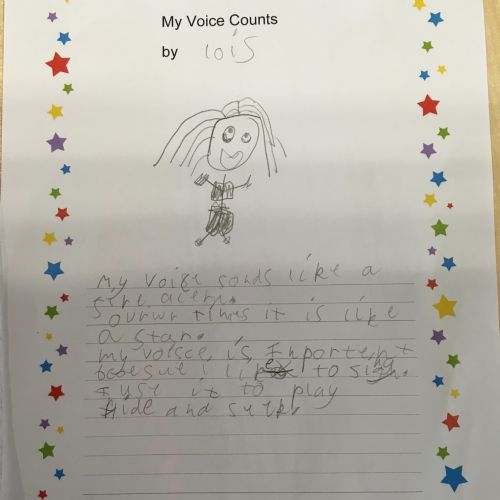 My Voice Counts
by lois
My voise sonds like a
fire alerm.
Sourwr times it is like
a star.
my voisce, is Inportent
becesue I like to sing.
I use it to play
Hide and seek.